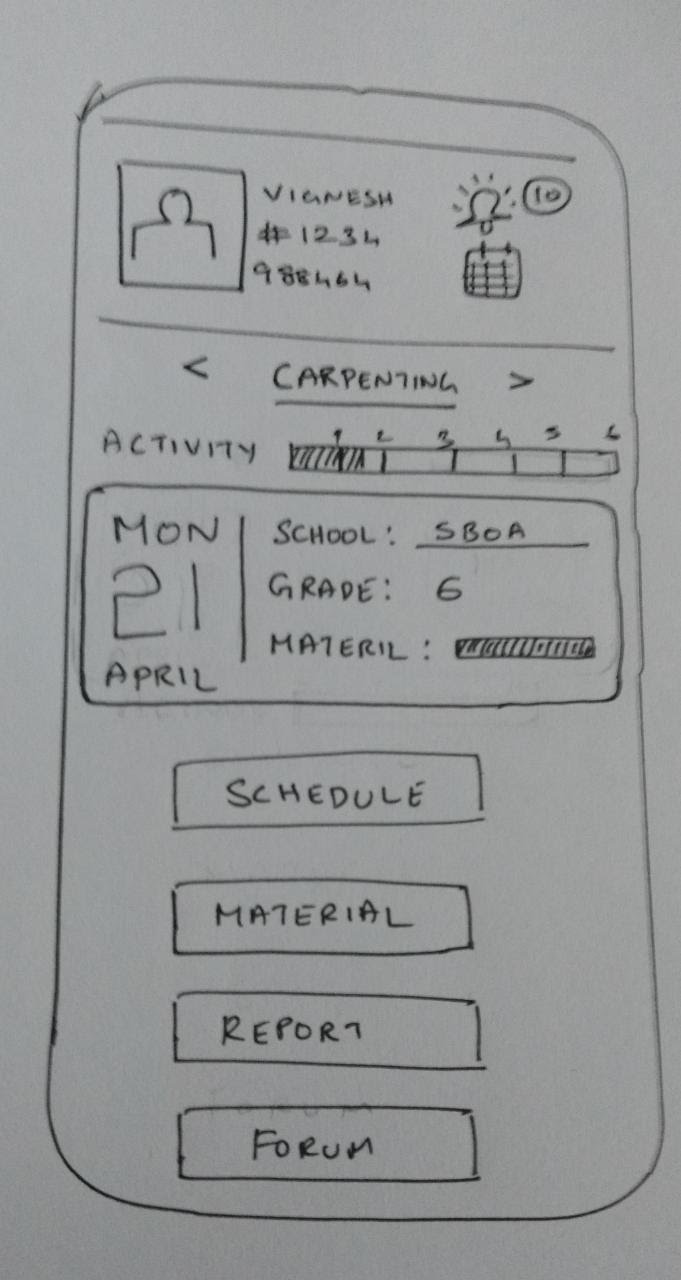 VIGNESH
10
#1234
988464
< CARPENTING >
1 2 3 4 5 6
ACTIVITY
MON
21
APRIL
SCHOOL: SBOA
GRADE: 6
MATERIL:
SCHEDULE
MATERIAL
REPORT
FORUM